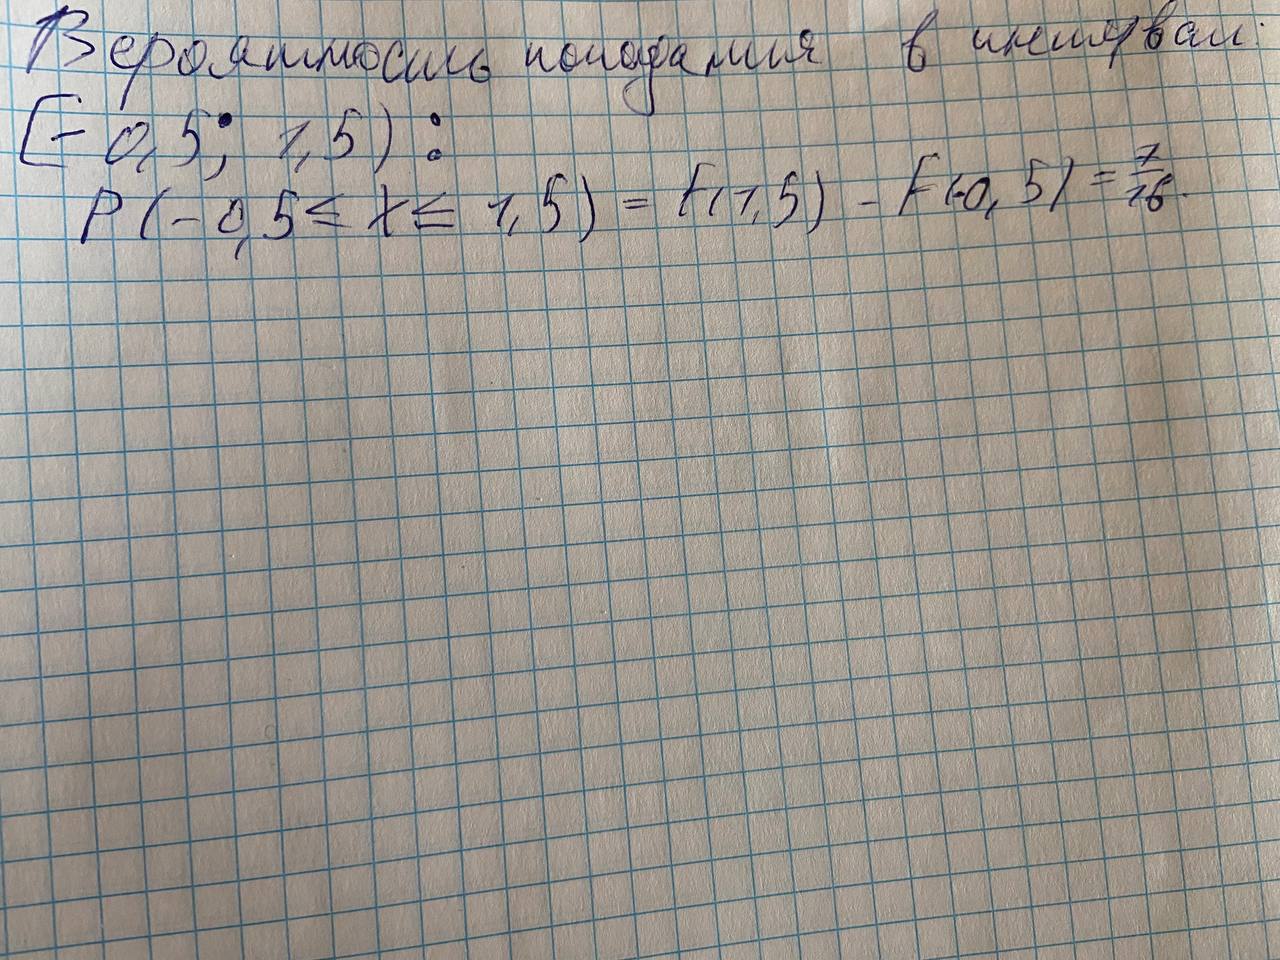 Вероятность попадания в интервал:
[-0,5; 1,5) :
P(-0,5 ≤ X ≤ 1,5) = F(1,5) - F(-0,5) = 7/16.